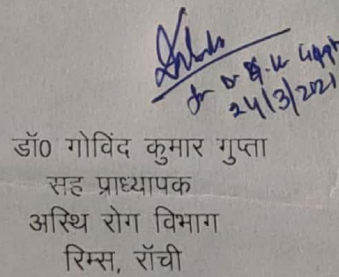 for Dr G.K Gupta
24/3/2021
डॉ0 गोविंद कुमार गुप्ता
सह प्राध्यापक
अस्थि रोग विभाग
रिम्स, रॉंची